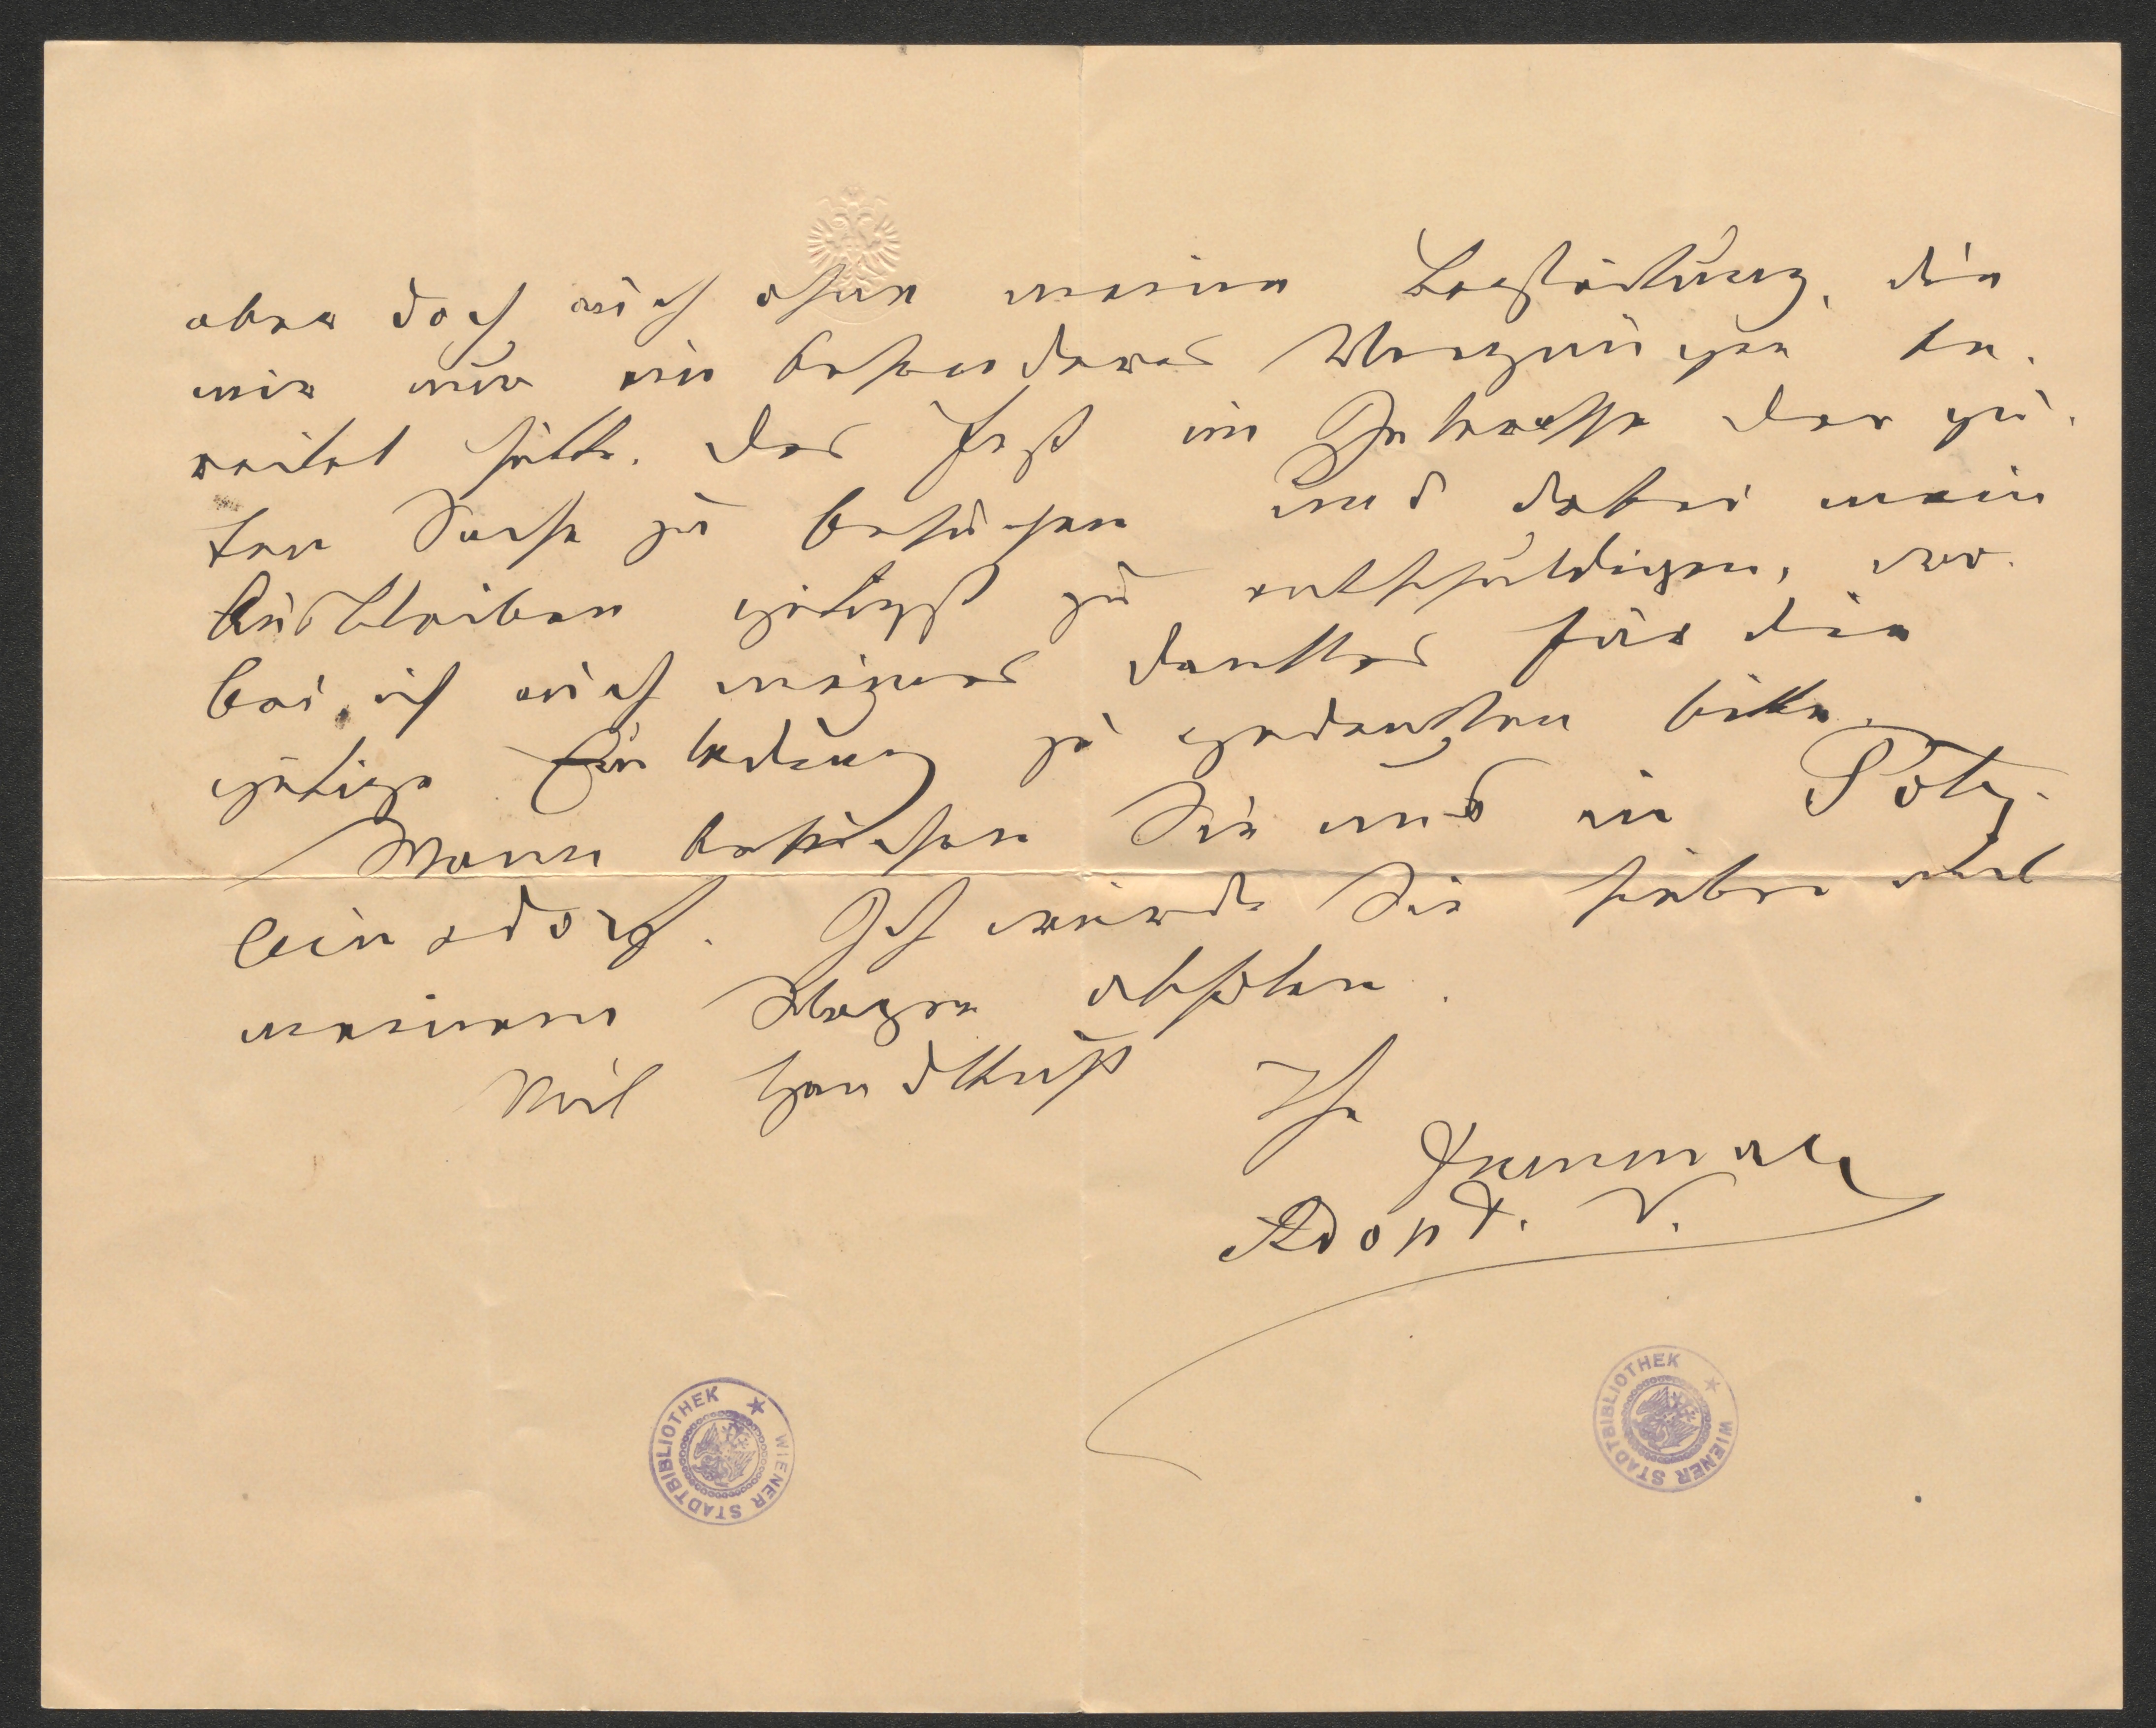 aber doch auch ohne meine Begleitung, die
mir nur ein besonderes Vergnügen be-
reitet hätte, das Fest im Interesse der gu-
ten Sache zu besuchen und dabei mein
Ausbleiben gütigst zu entschuldigen, wo-
bei ich auch meines Dankes für die
gütige Einladung zu gedenken bitte.
Wann besuchen Sie uns in Potz-
leinsdorf. Ich würde Sie selber mit
meinem Wagen abholen.
Mit Handkuß Ihr
Adopt. V.
WIENER STADTBIBLIOTHEK
WIENER STADTBIBLIOTHEK